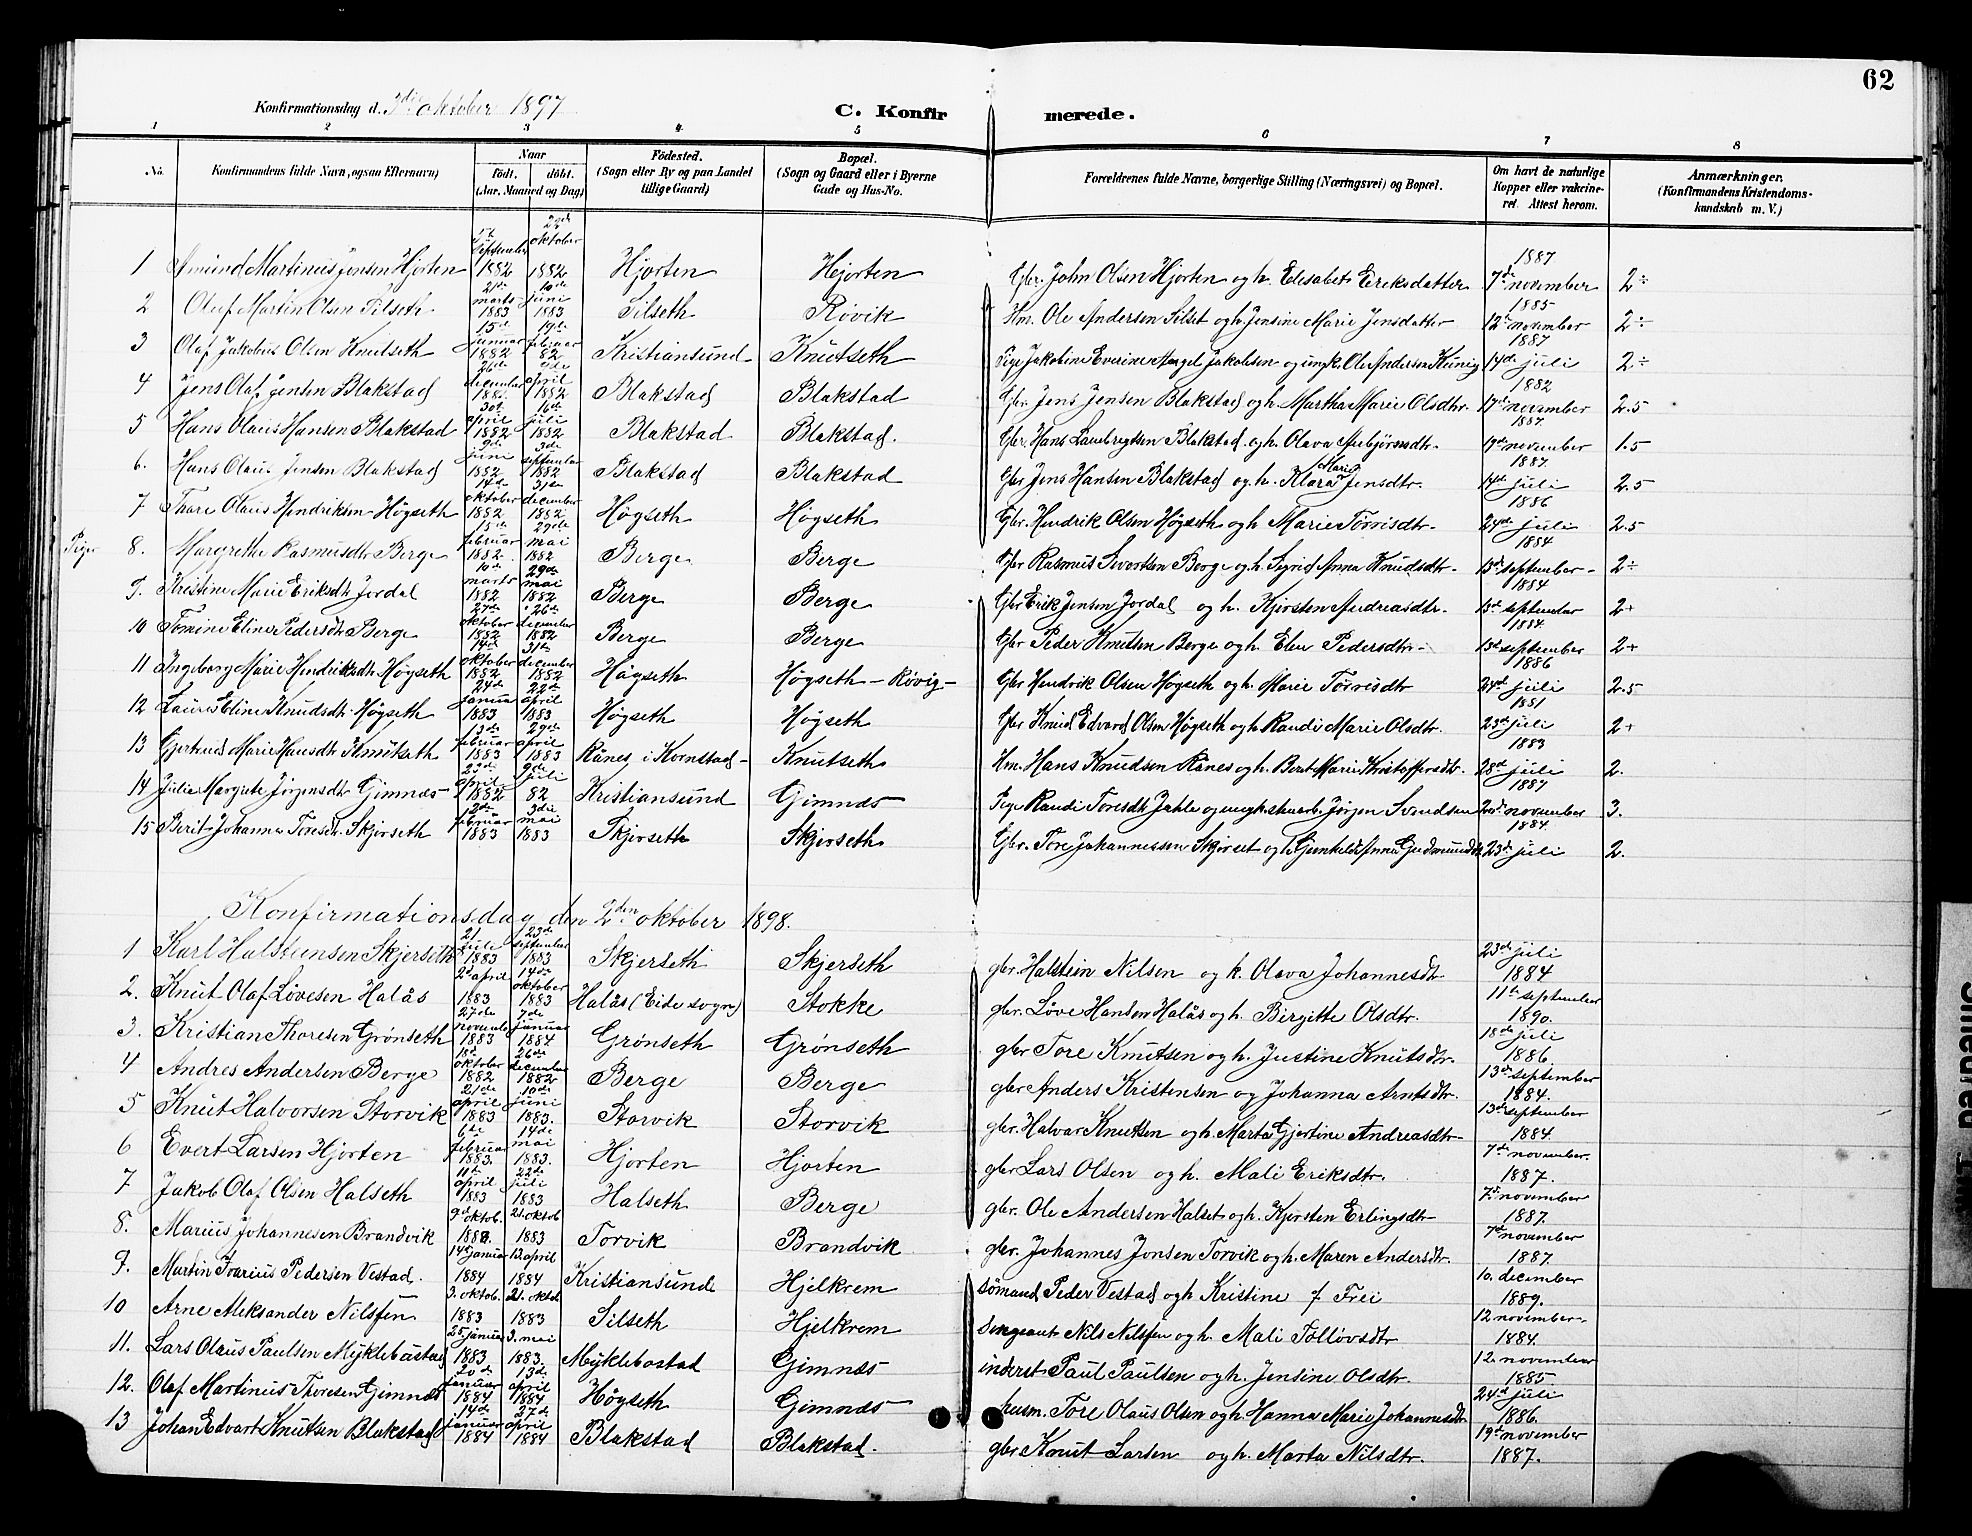 62
Konfirmationsdag d. 3die oktober 1897
C. Konfirmerede.
1 2 3 4 5 6 7 8
No.
Konfirmandens fulde Navn, ogsaa Efternavn)
Naar
Födt. döbt.
(Aar, Maaned og Dag)
Födested.
(Sogn eller By og paa Landet
tillige Gaard)
Bopæl.
(Sogn og Gaard eller i Byerne
Gade og Hus-No.
Forældrenes fulde Navne, borgerlige Stilling (Næringsvei) og Bopæl.
Om havt de naturlige
Kopper eller vakcine-
ret. Attest herom.
Anmærkninger.
(Konfirmandens Kristendoms-
kundskab m. V.)
1 Amund Martinus Jensen Hjorten september 1882 oktober 1882 Hjorten Hjorten Gbr. John Olsen Hjorten og h. Elisabet Eriksdatter 7de november 1887 2÷
2 Oluf Martin Olsen Silseth 21de marts 1883 10de juni 1883 Silseth Rövik Hm. Ole Andersen Silset og h. Jensine Marie Jensdatter 12te november 1885 2÷
3 Olaf Jakobus Olsen Knutseth 15de januar 1882 19de februar 82 Kristiansund Knutseth Pige Jakobine Everine Jakobsen og ungk. Ole Andersen 14de juli 1887 2÷
4 Jens Olaf Jensen Blakstad 26de december april 1882 Blakstad Blakstad Gbr. Jens Jensen Blakstad og h. Martha Marie Olsdtr. 17de november 1882 2.5
5 Hans Olaus Hansen Blakstad 30te april 1882 16de juli 1882 Blakstad Blakstad. Gbr. Hans Lambrigtsen Blakstad og h. Olava Aribjørnsdtr. 17de november 1887 1.5
6. Hans Olaus Jensen Blakstad 9de juni 1882 3de september 1882 Blakstad Blakstad Gbr Jens Hansen Blakstad og h. Klara Marie Jensdtr. 14de juli 1887. 2.5
7 Thore Olaus Hendriksen Högseth 14de oktober 1882 31te december 1882 Högseth Högseth Gbr. Hendrik Olsen Högseth og h Marie Torrisdtr. 24de juli 1886 2.5
Piger 8. Margrethe Rasmusdtr Berge 15de februar 1882 29de mai 1882 Berge Berge Gbr Rasmus Sivertsen Berge og h. Sigrid Anna Knudsdtr. 13de september 1884 2÷
9. Kristine Marie Eriksdtr Jordal 10de marts 1882 29de mai 1882 Berge Berge Gbr Erik Jensen Jordal og h. Kjersten Andreasdtr. 13de september 1884 2+
10 Tomine Eline Pedersdtr Berge 27de oktober 1882 26de december 1882 Berge Berge Gbr Peder Knutsen Berge og h. Elen Pedersdtr. 13de september 1884 2+
11 Ingeborg Marie Hendriksdtr Högseth 14de oktober 1882 31te december 1882 Högseth Högseth - Rövig - Gbr Hendrik Olsen Högseth og h. Marie Torrisdtr 24de juli 1886 2.5
12 Lauris Eline Knudsdtr Högseth 24de januar 1883 22de april 1883 Högseth Högseth Gbr Knud Edvard Olsen Högseth og h Randi Marie Olsdtr. 23de juli 1881 2+
13 Gjertrud Marie Hansdtr Knutseth 13de februar 1883 29de april 1883 Rånes i Kornstad - Knutseth Hm. Hans Knudsen Rånes og h. Berit Marie Kristoffersdtr. 28de juli 1883 2.
14 Julia Margrete Jörgensdtr Gimnæs 23de april 1882 9de juli 82 Kristiansund Gimnæs Pige Randi Toresdtr Jahle og ungk. Jörgen Svendsen november 1887 3.
15 Berit Johanna Toresdtr. Skjerseth 2de februar 1883 3die mai 1883 Skjerseth Skjerseth Gbr. Tore Johannessen Skjerset og h. Gunhild Anna Gudmundsdtr 23de juli 1884. 2.
Konfirmationsdag den 2den oktober 1898.
1 Karl Halsteinsen Skjerseth 21 juli 1883 23de september 1883 Skjerseth Skjerseth gbr. Halstein Nilsen og k. Olava Johannesdtr. 23de juli 1884
2. Knut Olaf Løvesen Halås 2de april 1883 14de oktober 1883 Halås (Eide sogn) Stokke gbr. Løve Hansen Halås og h. Birgitte Olsdtr. 11te september 1890.
3. Kristian Thoresen Grönseth 27de novemb. 1883 7de januar 1884 Grönseth Grönseth gbr Tore Knutsen og h. Justine Knutsdtr. 18de juli 1886.
4 Andres Andersen Berge 18de oktober 1882 26de december 1882 Berge Berge gbr Anders Kristensen og Johanna Arntsdtr. 13de september 1884.
5 Knut Halvorsen Storvik 21de april 1883 10de juni 1883. Storvik Storvik gbr. Halvar Knutsen og h. Marta Gjertine Andreasdtr 13de september 1884.
6 Evert Larsen Hjorten 6de februar 1883. 14de mai 1883. Hjorten Hjorten gbr Lars Olsen og h. Mali Eriksdtr. 7de november. 1887.
7 Jakob Olaf Olsen Halseth 11te april 1883 22de juli 1883 Halseth Berge gbr. Ole Andersen Halset og h. Kjersten Erlingsdtr 7de november 1887.
8. Marius Johannesen Brandvik 9de oktob. 21. oktob 1883 Torvik Brandvik gbr. Johannes Jonsen Torvik og h. Maren Andersdtr. 7de november 1887.
9. Martin Ivarius Pedersen Vestad. 14de januar 1884 13. april 1884 Kristiansund Hjelkrem sömand Peder Vestad og h Kristine f Frei 10. december 1889.
10 Arne Aleksander Nilssen 3. oktob. 1883 21. oktob 1883 Silseth Hjelkrem sergeant Nils Nilssen og h. Mali Tolløvsdtr 12 november. 1884.
11. Lars Olaus Paulsen Myklebostad 25 januar 1883 3. mai 1883. Myklebostad Gimnæs inderst Paul Paulsen og h. Jensine Olsdtr. 12. november 1885
12. Olaf Martinus Thoresen Gimnæs 20de januar 1884 13de april 1884 Högseth Gimnæs husm. Tore Olaus Olsen og h. Hanna Marie Johannesdtr 24de juli 1886.
13 Johan Edvart Knutsen Blakstad 14de januar 1884 27de april 1884 Blakstad Blakstad. gbr Knut Larsen og h. Marta Nilsdtr. 19de november 1887.